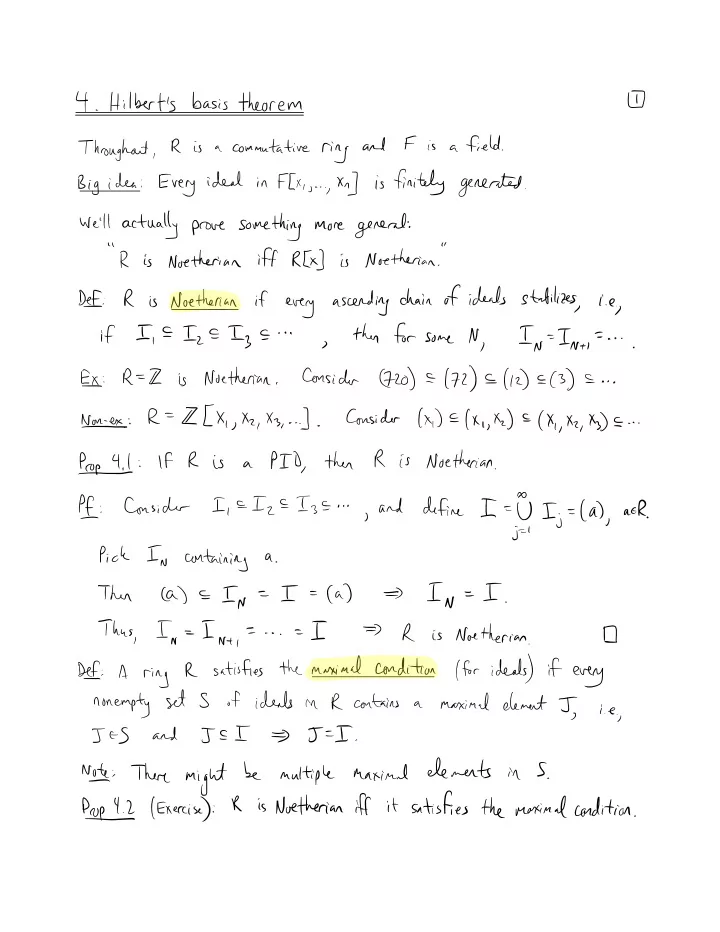 4. Hilbert's basis theorem
1
Throughout, R is a commutative ring and F is a field.
Big idea: Every ideal in F[x₁,..., xₙ] is finitely generated.
We'll actually prove something more general:
"R is Noetherian iff R[x] is Noetherian."
Def: R is Noetherian if every ascending chain of ideals stabilizes, i.e,
if I₁ ⊆ I₂ ⊆ I₃ ⊆ ⋯ , then for some N, I_N = I_{N+1} = ⋯.
Ex: R=ℤ is Noetherian. Consider (720) ⊆ (72) ⊆ (12) ⊆ (3) ⊆ ⋯
Non-ex: R = ℤ[x₁, x₂, x₃, ...]. Consider (x₁) ⊆ (x₁, x₂) ⊆ (x₁, x₂, x₃) ⊆ ⋯
Prop 4.1: If R is a PID, then R is Noetherian.
Pf: Consider I₁ ⊆ I₂ ⊆ I₃ ⊆ ⋯ , and define I = ⋃_{j=1}^∞ I_j = (a), a∈R.
Pick I_N containing a.
Then (a) ⊆ I_N = I = (a) ⇒ I_N = I.
Thus, I_N = I_{N+1} = ⋯ = I ⇒ R is Noetherian. □
Def: A ring R satisfies the maximal condition (for ideals) if every
nonempty set S of ideals in R contains a maximal element J, i.e,
J∈S and J ⊆ I ⇒ J=I.
Note: There might be multiple maximal elements in S.
Prop 4.2 (Exercise): R is Noetherian iff it satisfies the maximal condition.